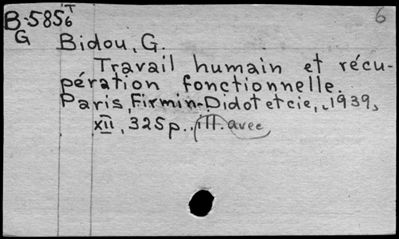 B-5856T 6
G Bidou, G.
Travail humain et récu-
pération fonctionnelle.
Paris, Firmin-Didot et cie, 1939,
XII, 325p., ill. avec